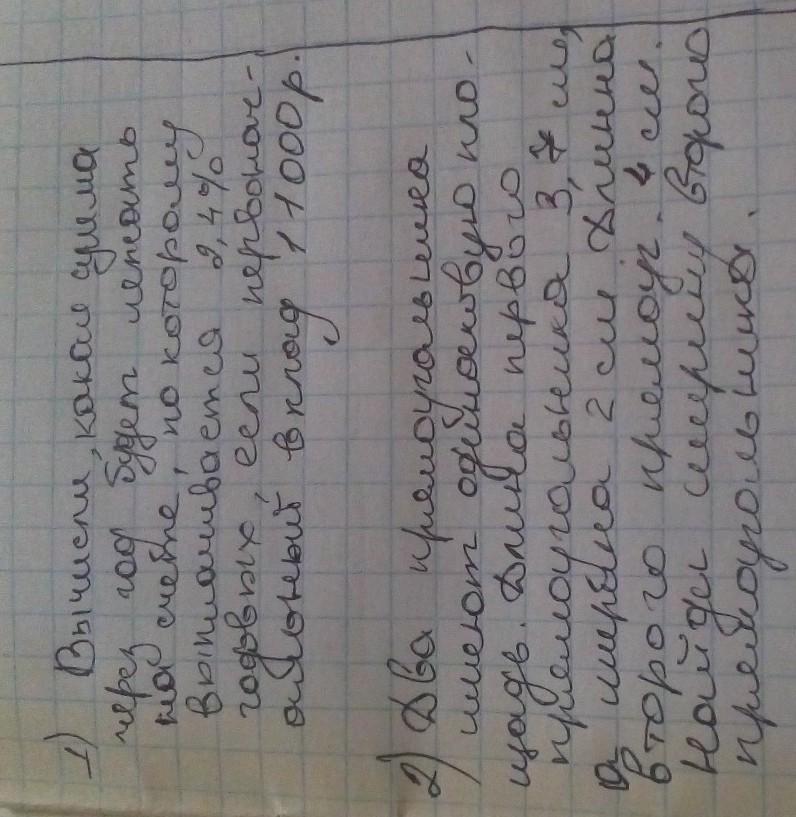 1) Вычисли, какая сумма
через год будет лежать
на счете, по которому
выплачивается 2,4%
годовых, если первонач-
альный вклад 11000р.
2) Два прямоугольника
имеют одинаковую пло-
щадь. Длина первого
прямоугольника 3,7 см,
а ширина 2 см Длинна
второго прямоуг. 4 см.
Найди ширину второго
прямоугольника.